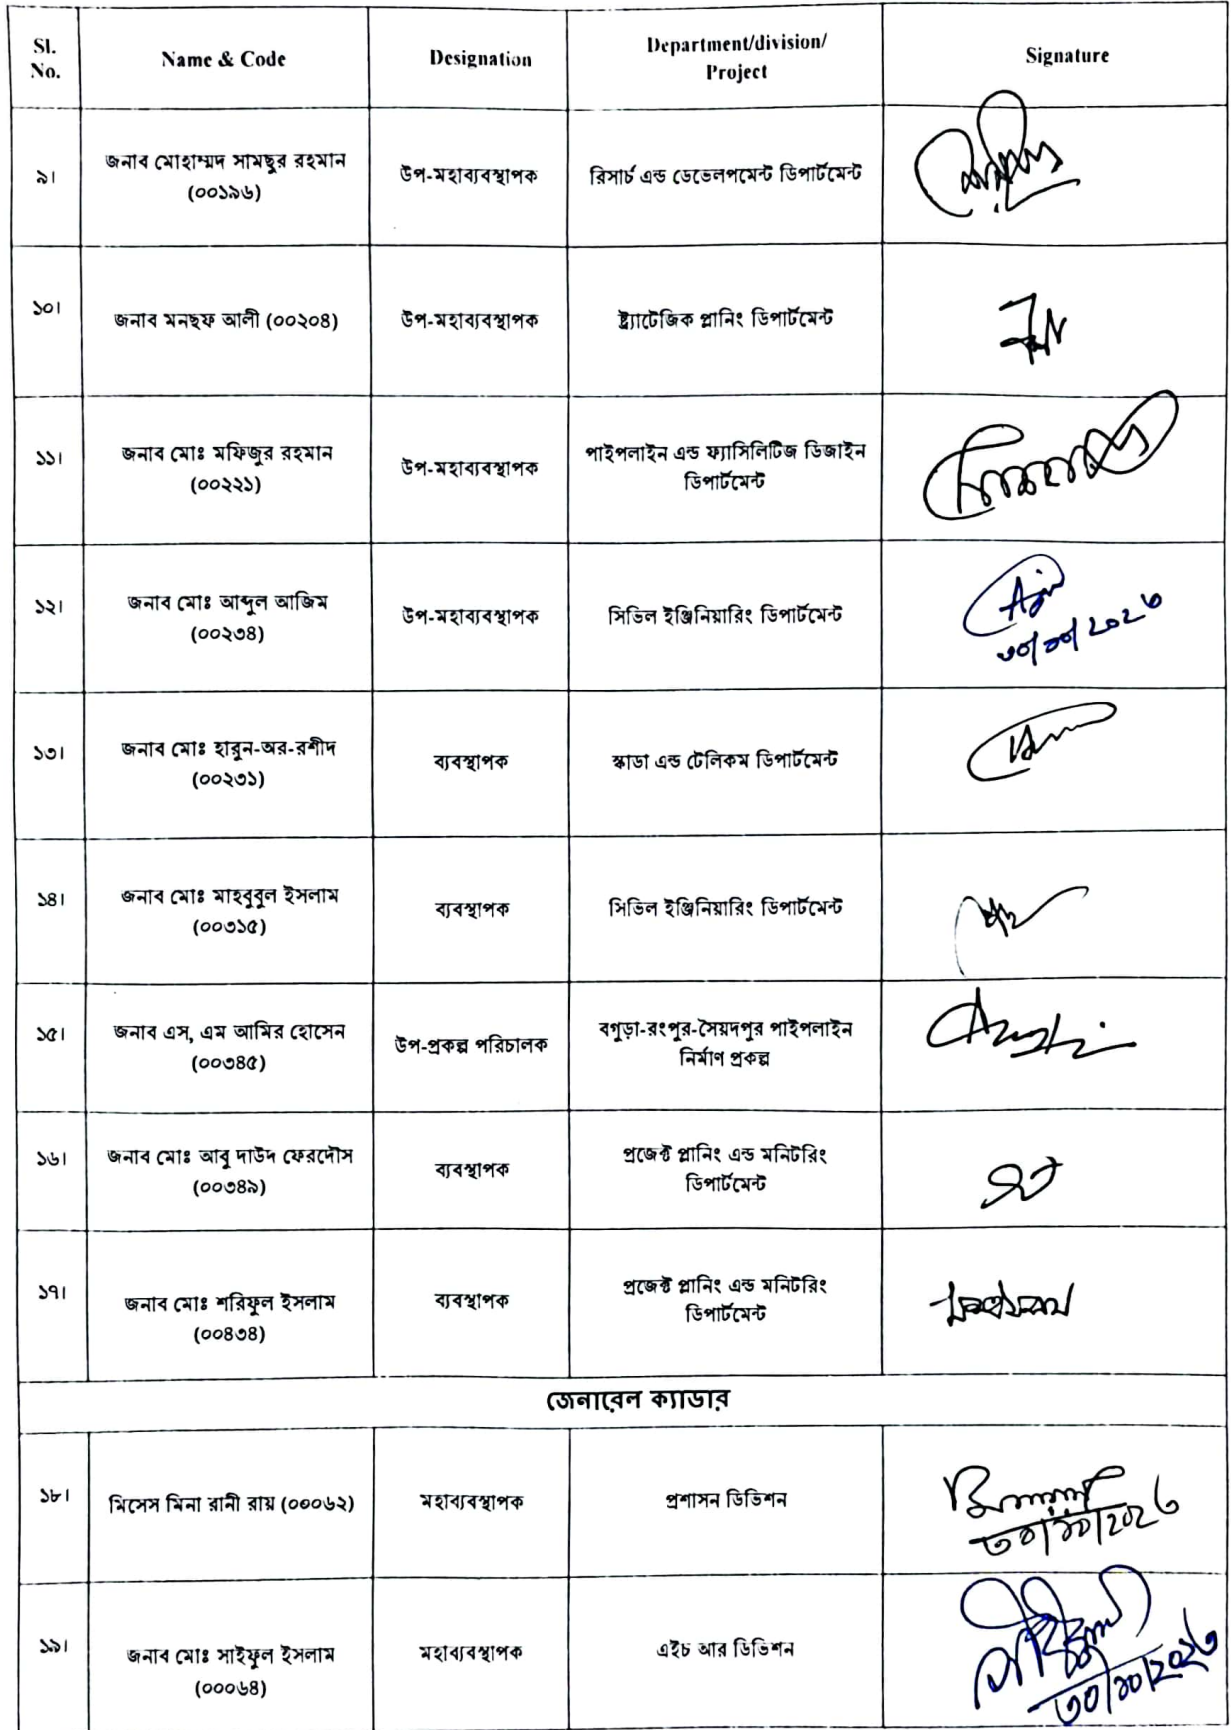 Sl. No.
Name & Code
Designation
Department/division/
Project
Signature
৯।
জনাব মোহাম্মদ সামছুর রহমান
(০০১৯৬)
উপ-মহাব্যবস্থাপক
রিসার্চ এন্ড ডেভেলপমেন্ট ডিপার্টমেন্ট
১০।
জনাব মনছফ আলী (০০২০৪)
উপ-মহাব্যবস্থাপক
ষ্ট্র্যাটেজিক প্লানিং ডিপার্টমেন্ট
১১।
জনাব মোঃ মফিজুর রহমান
(০০২২১)
উপ-মহাব্যবস্থাপক
পাইপলাইন এন্ড ফ্যাসিলিটিজ ডিজাইন
ডিপার্টমেন্ট
১২।
জনাব মোঃ আব্দুল আজিম
(০০২৩৪)
উপ-মহাব্যবস্থাপক
সিভিল ইঞ্জিনিয়ারিং ডিপার্টমেন্ট
১৩।
জনাব মোঃ হারুন-অর-রশীদ
(০০২৩১)
ব্যবস্থাপক
স্কাডা এন্ড টেলিকম ডিপার্টমেন্ট
১৪।
জনাব মোঃ মাহবুবুল ইসলাম
(০০৩১৫)
ব্যবস্থাপক
সিভিল ইঞ্জিনিয়ারিং ডিপার্টমেন্ট
১৫।
জনাব এস, এম আমির হোসেন
(০০৩৪৫)
উপ-প্রকল্প পরিচালক
বগুড়া-রংপুর-সৈয়দপুর পাইপলাইন
নির্মাণ প্রকল্প
১৬।
জনাব মোঃ আবু দাউদ ফেরদৌস
(০০৩৪৯)
ব্যবস্থাপক
প্রজেক্ট প্লানিং এন্ড মনিটরিং
ডিপার্টমেন্ট
১৭।
জনাব মোঃ শরিফুল ইসলাম
(০০৪৩৪)
ব্যবস্থাপক
প্রজেক্ট প্লানিং এন্ড মনিটরিং
ডিপার্টমেন্ট
জেনারেল ক্যাডার
১৮।
মিসেস মিনা রানী রায় (০০০৬২)
মহাব্যবস্থাপক
প্রশাসন ডিভিশন
১৯।
জনাব মোঃ সাইফুল ইসলাম
(০০০৬৪)
মহাব্যবস্থাপক
এইচ আর ডিভিশন